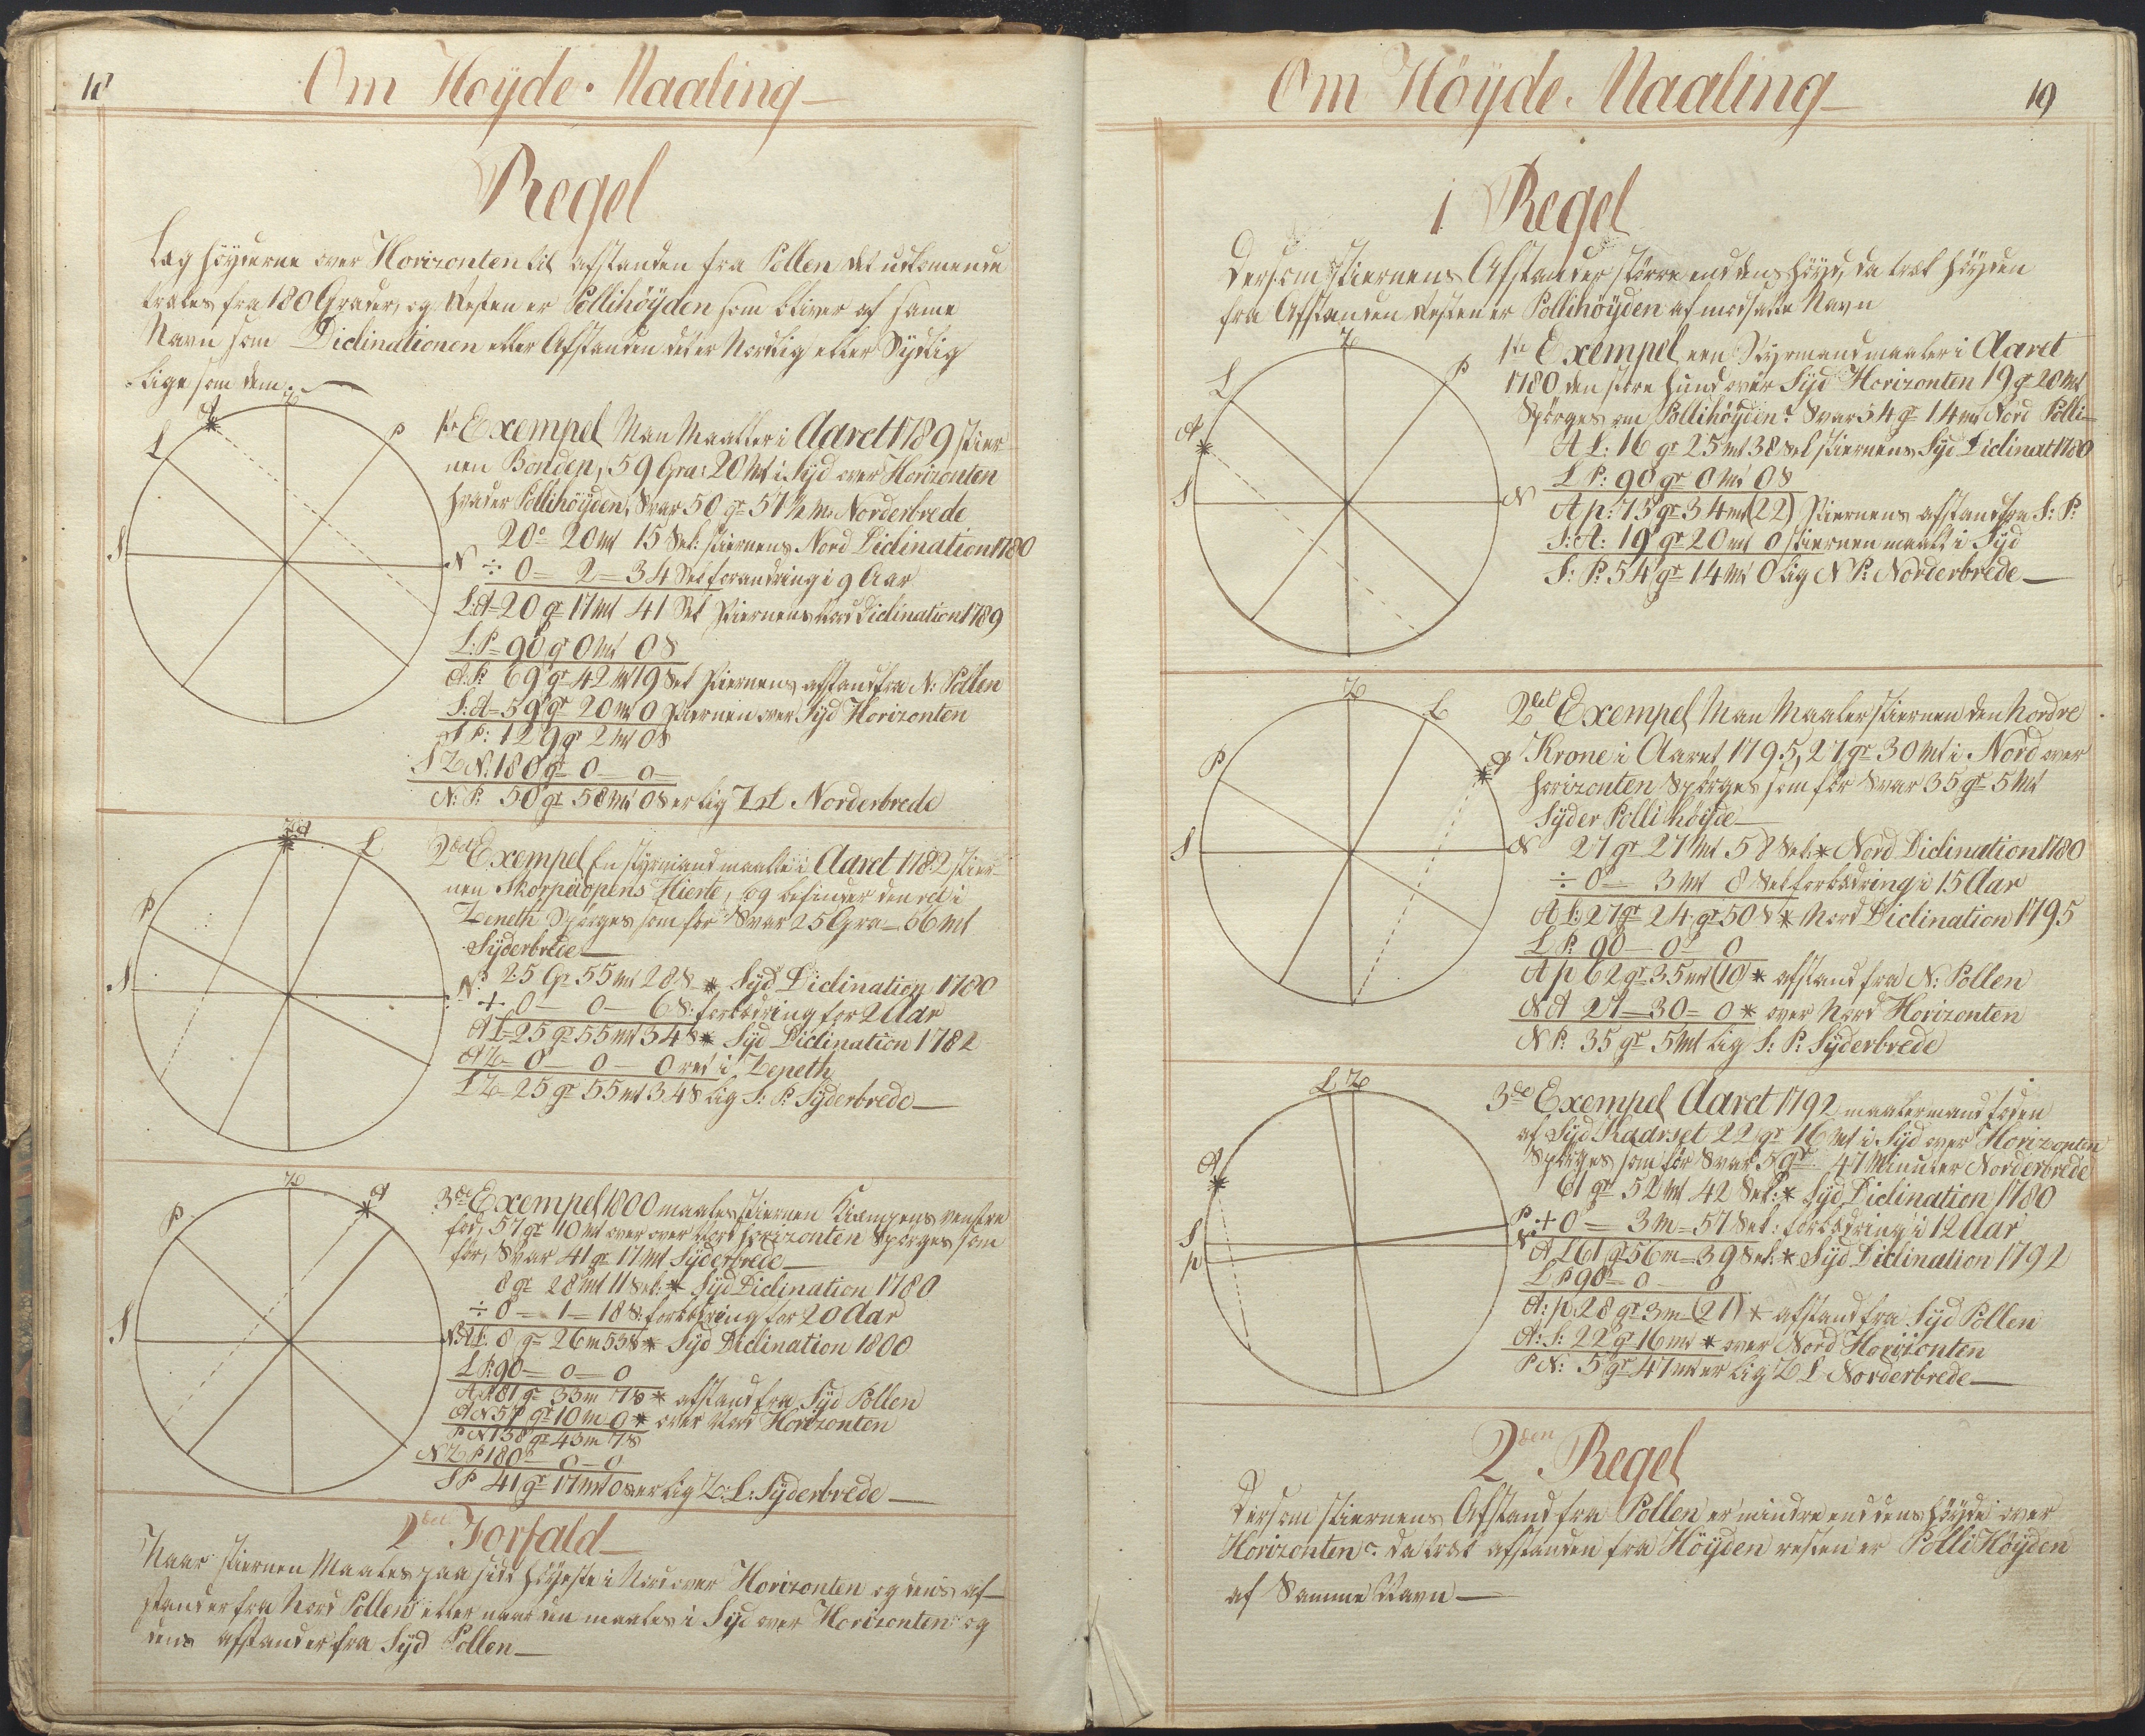 18
Om Høyde-Maaling
Regel
Læg höyderne over Horizonten til afstanden fra Pollen det udkomende
trækes fra 180 Grader, og Resten er Pollihöyden som bliver af same
Navn som Diclinationen eller Afstanden det er Nordlig eller Sydlig
Lige som dem.
Z
A
L
P
S
N
1ste Exempel Man Maaller i Aaret 1789 stier-
nen Bonden, 59 Gra: 20 Mt i Syd over Horizonten
hvad er Pollihöyden, Svar 50 gr 57 ½ Mt Norderbrede
20° 20 mt 15 Sek: stiernens Nord Diclination 1780
÷ 0 = 2 = 34 Sek forandring i 9 Aar
L:A = 20 gr 17 Mt 41 Sek stiernens Nord Diclination 1789
L:P = 90 gr 0 Mt 0 S
A:P: 69 gr 42 Mt 19 Sek stiernens afstand fra N: Pollen
S:A = 59 gr 20 Mt 0 stiernen over Syd Horizonten
S P: 129 gr 2 Mt 0 S
S Z N: 180 gr 0 — 0 —
N: P: 50 gr 58 Mt 0 S er lig Z L Norderbrede
Z A
L
P
S
N
2det Exempel En styrmand maalte i Aaret 1782 stier-
nen Skorpiopens Hierte, og befinder den ret i
Zeneth Spörges som för Svar 25 Gra = 56 Mt
Syderbrede
25 Gr 55 Mt 28 S * Syd Diclination 1780
+ 0 — 0 — 6 S: forbedring for 2 Aar
A L = 25 gr 55 Mt 34 S * Syd Diclination 1782
A Z = 0 — 0 — 0 ret i Zeneth
L Z = 25 gr 55 Mt 34 S lig S: P: Syderbrede
Z
A
P
S
N
3de Exempel 1800 maales stiernen Kiæmpens venstre
fod, 57 gr 10 Mt over over Nord horizonten Spörges som
för, Svar 41 gr 17 Mt Syderbrede
8 gr 28 Mt 11 Sek: * Syd Diclination 1780
÷ 0 — 1 = 18 S: forbedring for 20 Aar
A L: 8 gr 26 m 53 S * Syd Diclination 1800
L P: 90 = 0 = 0
A P 81 gr 33 m 7 S * afstand fra Syd Pollen
A N 57 gr 10 m 0 * over Nord Horizonten
P N 138 gr 43 m 7 S
N Z P 180° — 0 — 0
S P 41 gr 17 Mt 0 S er lig Z: L: Syderbrede
2den Forfald
Naar stiernen Maales paa sidt höyeste i Nord over Horizonten og dens af-
stand er fra Nord Pollen eller naar den maales i Syd over Horizonten og
dens afstand er fra Syd Pollen
Om Höyde. Maaling
19
1 Regel
Dersom stiernens Afstand er större end dens höyd, da træk höyden
fra Afstanden Resten er Pollihöyden af modsatte Navn
Z
L
P
A
S
N
1te Exempel een Styrmand maaler i Aaret
1780 den store hund over Syd Horizonten 19 gr 20 Mt
Spörges om Pollihöyden? Svar 54 gr 14 m Nord Polli-
A L: 16 gr 25 Mt 38 Sek stiernens Syd Diclinat 1780
L P: 90 gr 0 Mt 0 S
A p: 73 gr 34 mt (22) stiernens afstand fra S: P:
S: A: 19 gr 20 mt 0 stiernen maalt i Syd
S: P: 54 gr 14 Mt 0 lig N P: Norderbrede
Z
L
P
A
S
N
2det Exempel Man Maaler stiernen den Nordre
Krone i Aaret 1795, 27 gr 30 Mt i Nord over
horizonten Spörges som för Svar 35 gr 5 Mt
Syder Polli höyde
27 gr 27 Mt 58 Sek: * Nord Diclination 1780
÷ 0 = 3 Mt 8 Sek forbedring i 15 Aar
A L: 27 gr 24 gr 50 S * Nord Diclination 1795
L P: 90 — 0 — 0
A p 62 gr 35 mt (10) * afstand fra N: Pollen
N A 27 = 30 = 0 * over Nord Horizonten
N P: 35 gr 5 Mt lig S: P: Syderbrede
L Z
A
S
p
P
N
3de Exempel Aaret 1792 maaler mand foden
af Syd Kaarset 22 gr 16 Mt i Syd over Horizonten
Spörges som för Svar 5 gr 47 Minuter Norderbrede
61 gr 52 Mt 42 Sek: * Syd Diclination 1780
+ 0 = 3 m = 57 Sek: forbedring i 12 Aar
A L 61 gr 56 m = 39 Sek: * Syd Diclination 1792
L P 90 = 0 — 0
A: p 28 gr 3 m (21) * afstand fra Syd Pollen
A: S: 22 gr 16 Mt * over Nord Horizonten
P N: 5 gr 47 mt er lig Z L Norderbrede
2den Regel
Dersom stiernens Afstand fra Pollen er mindre end dens höyde over
Horizonten da træk afstanden fra Höyden resten er Polli Höyden
af Samme Navn